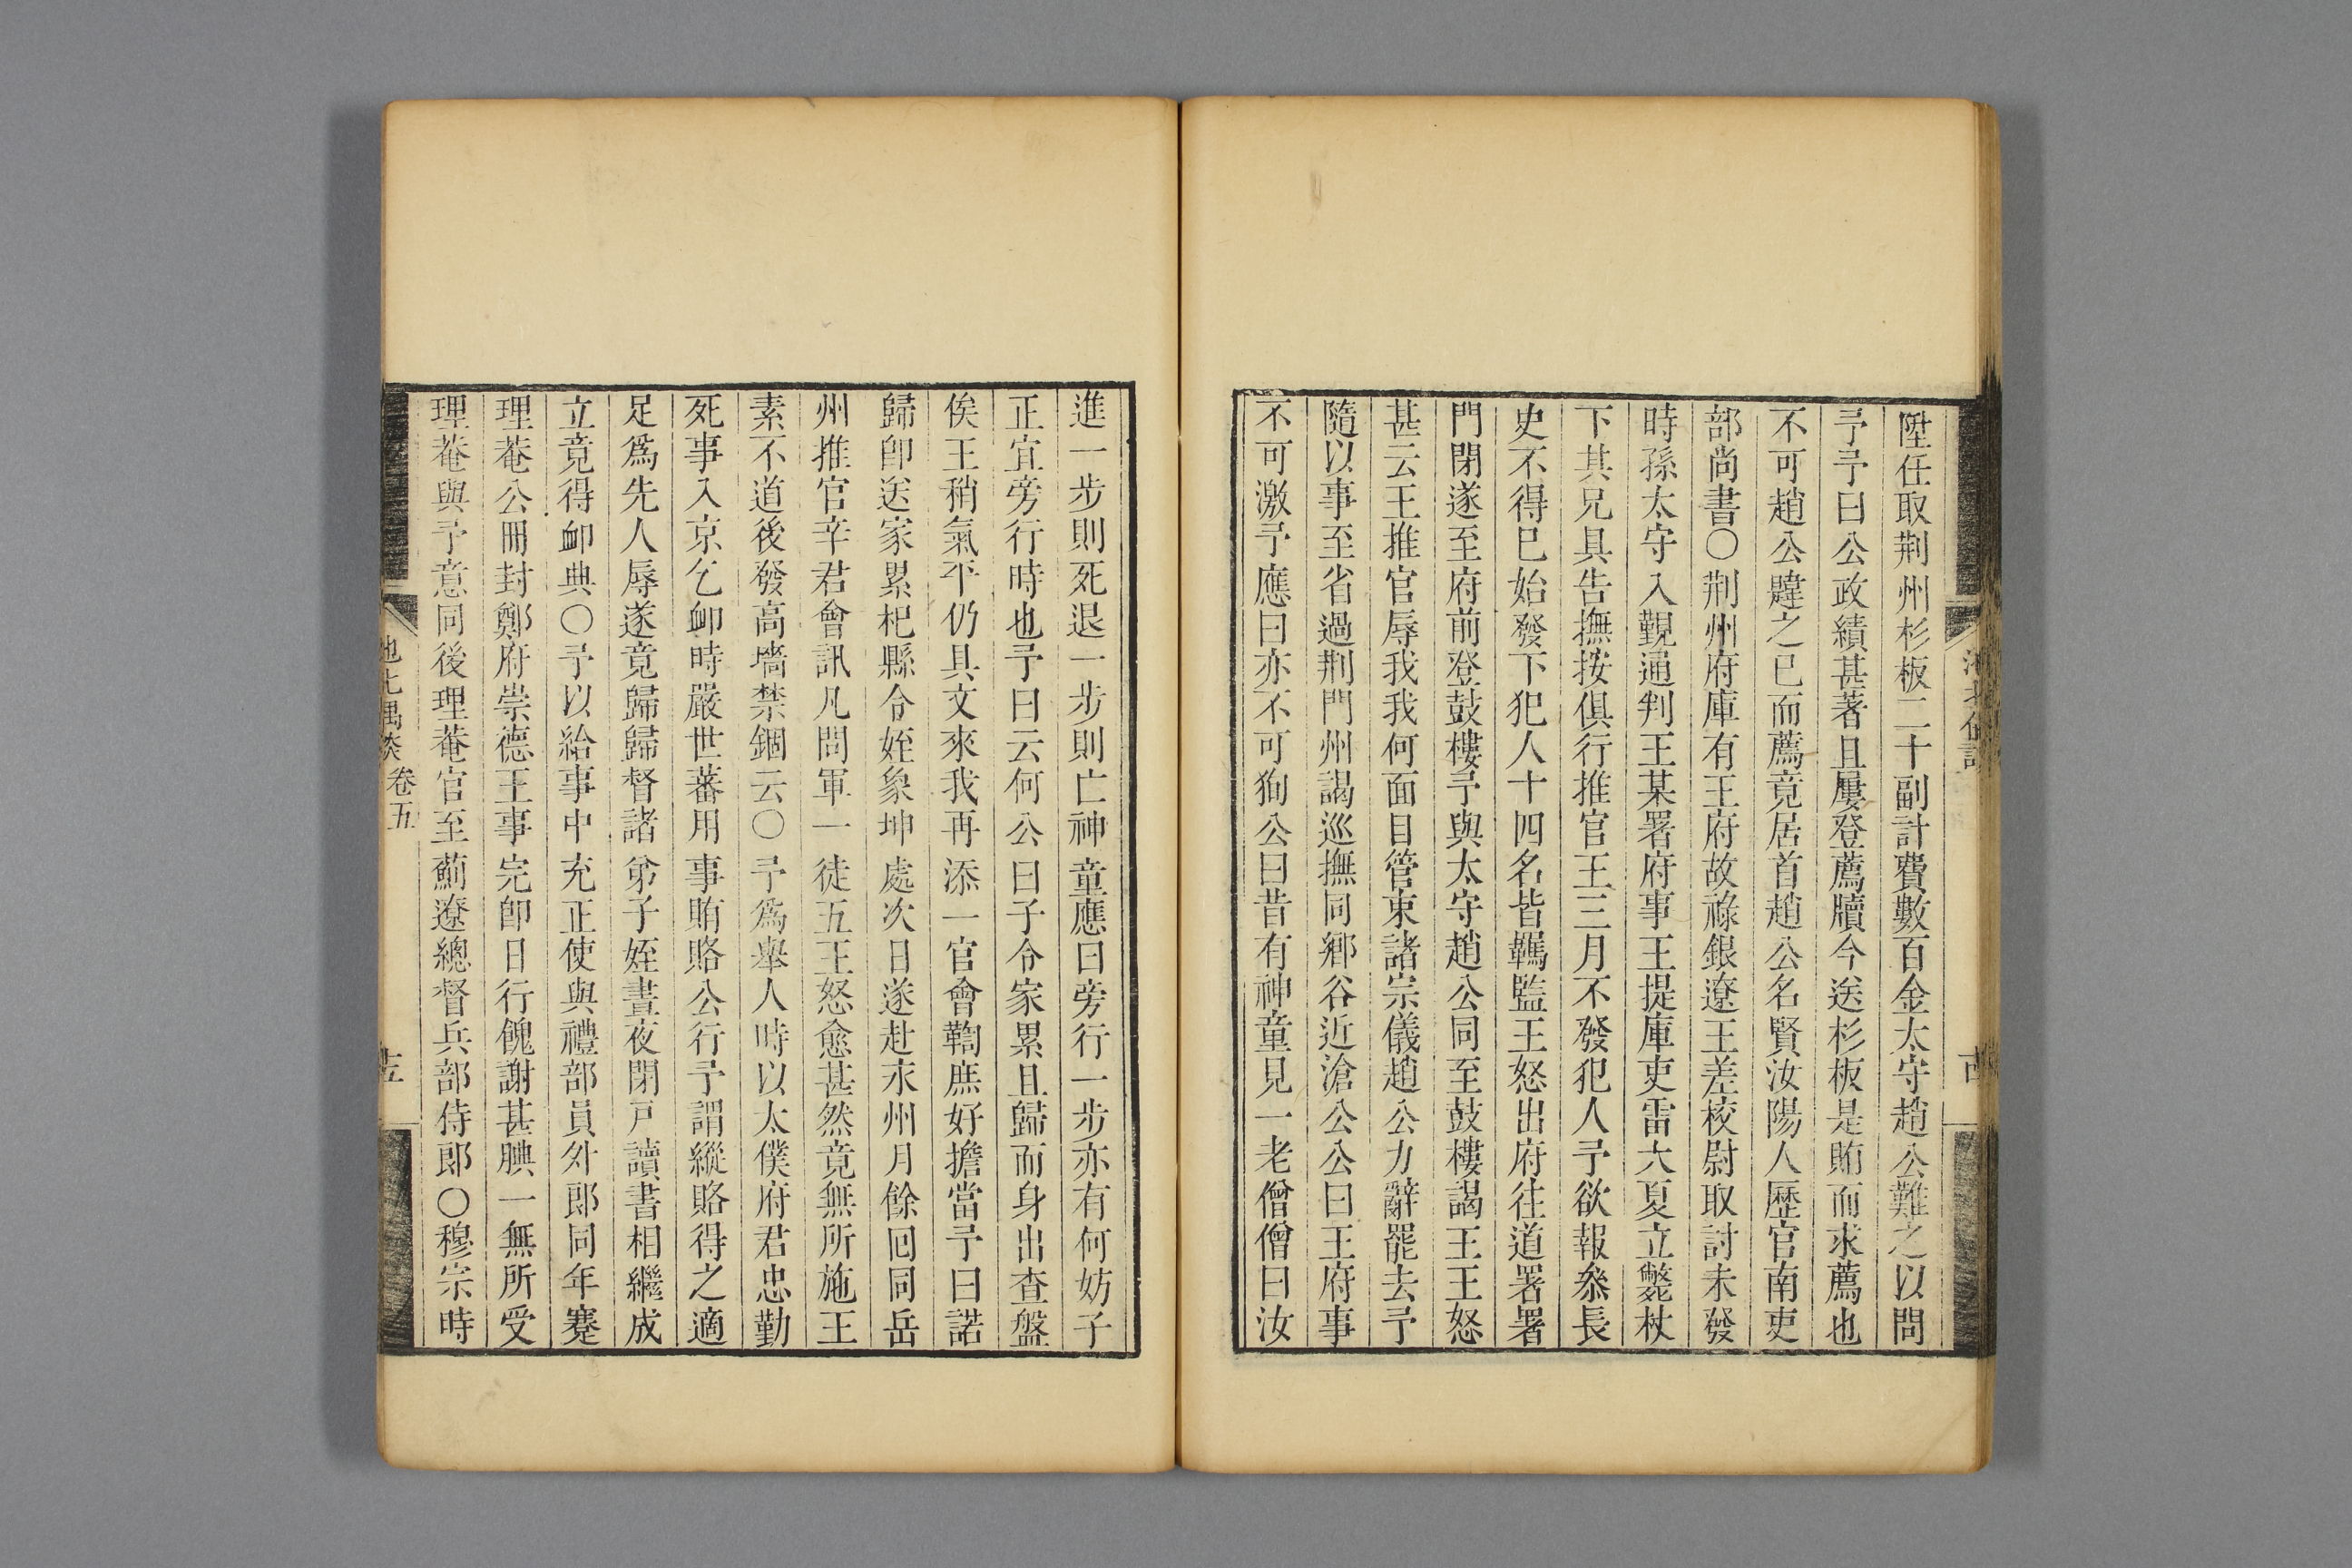 陞任取荆州杉板二十副計費數百金太守趙公難之以問
予予曰公政績甚著且屢登薦牘今送杉板是賄而求薦也
不可趙公韙之已而薦竟居首趙公名賢汝陽人歷官南吏
部尚書○荆州府庫有王府故祿銀遼王差校尉取討未發
時孫太守入覲通判王某署府事王提庫吏雷大夏立斃杖
下其兄具告撫按俱行推官王三月不發犯人予欲報叅長
史不得已始發下犯人十四名皆羈監王怒出府往道署署
門閉遂至府前登鼓樓予與太守趙公同至鼓樓謁王王怒
甚云王推官辱我我何面目管束諸宗儀趙公力辭罷去予
隨以事至省過荆門州謁巡撫同鄉谷近滄公公曰王府事
不可激予應曰亦不可狥公曰昔有神童見一老僧僧曰汝
進一步則死退一步則亡神童應曰旁行一步亦有何妨子
正宜旁行時也予曰云何公曰子令家累且歸而身出查盤
俟王稍氣平仍具文來我再添一官會鞫庶好擔當予曰諾
歸卽送家累杞縣令姪象坤處次日遂赴永州月餘回同岳
州推官辛君會訊凡問軍一徒五王怒愈甚然竟無所施王
素不道後發高墻禁錮云○予爲舉人時以太僕府君忠勤
死事入京乞卹時嚴世蕃用事賄賂公行予謂縱賂得之適
足爲先人辱遂竟歸歸督諸弟子姪晝夜閉戸讀書相繼成
立竟得卹典○予以給事中充正使與禮部員外郎同年蹇
理菴公冊封鄭府崇德王事完卽日行餽謝甚腆一無所受
理菴與予意同後理菴官至薊遼總督兵部侍郎○穆宗時
池北偶談 卷五